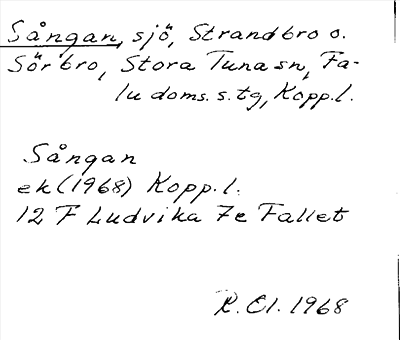 Sångan, sjö, Strandbro o.
Sörbro, Stora Tuna sn, Fa-
lu doms. s. tg, Kopp. l.
Sångan
ek (1968) Kopp. l.
12 F Ludvika 7e Fallet
R. El. 1968